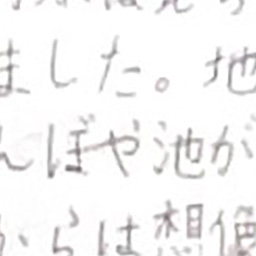 ました。地
んぼや池が
からは想像